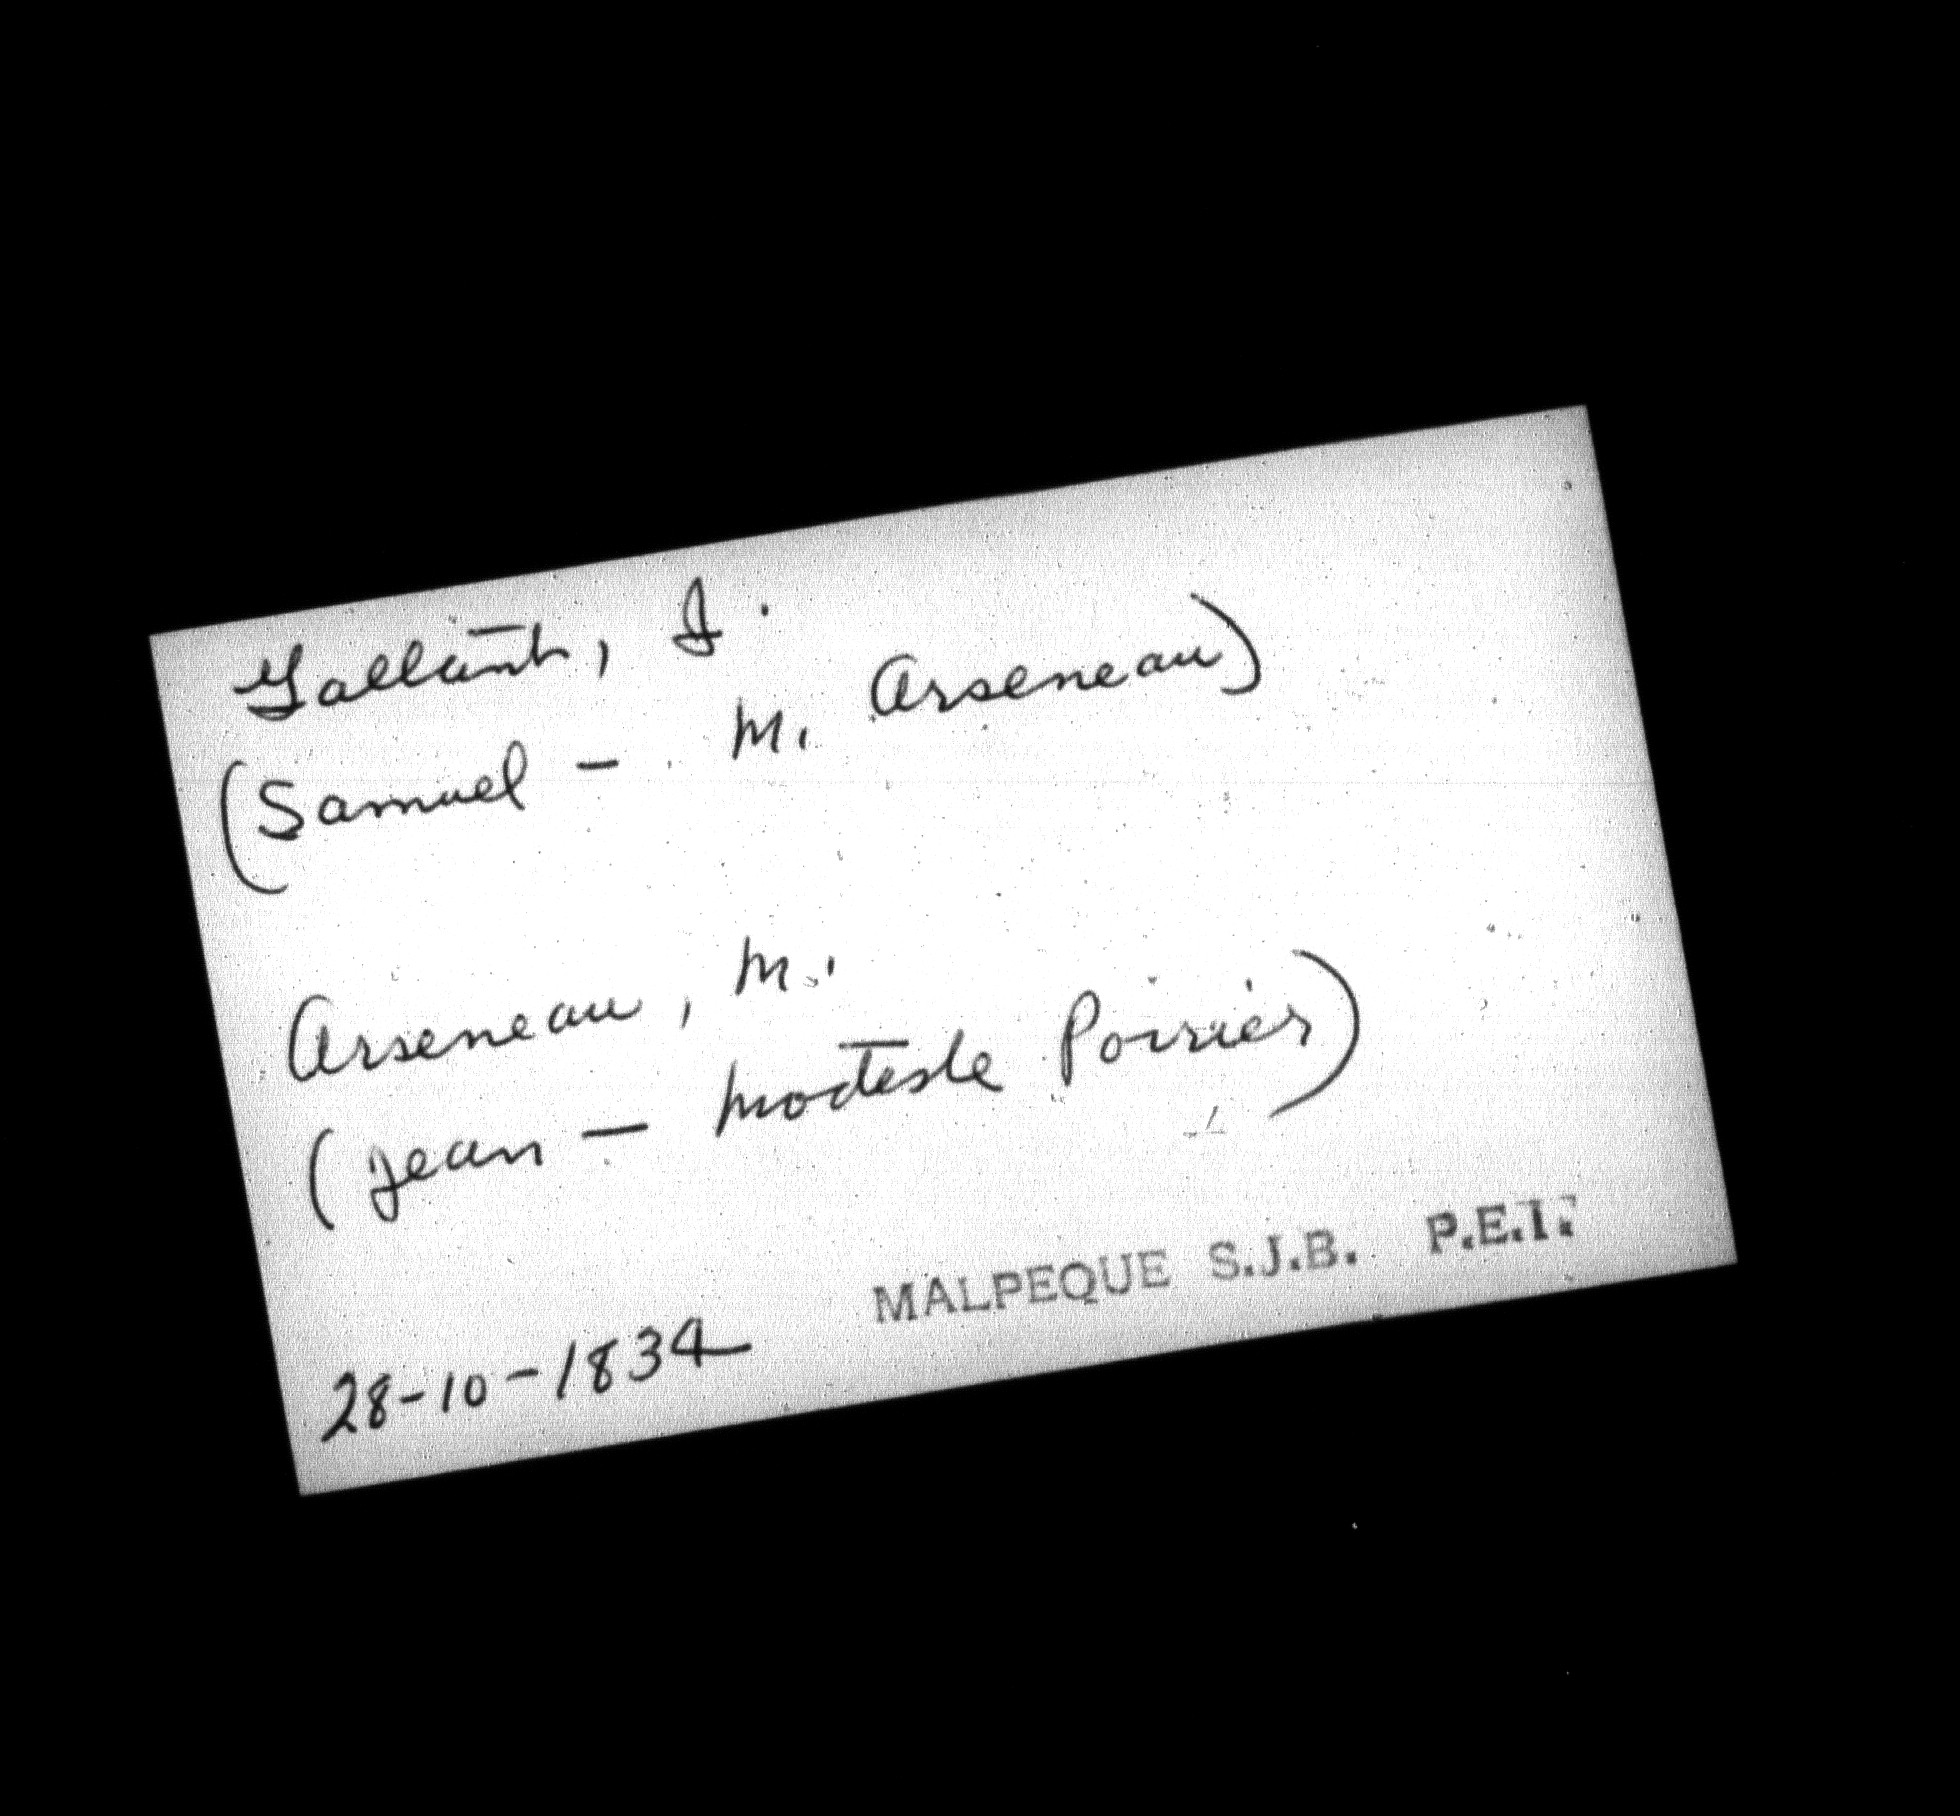 Gallant, I.
(Samuel - M. Arseneau)
Arseneau, M.
(Jean - Modeste Poirier)
28-10-1834 MALPEQUE S.J.B. P.E.I.